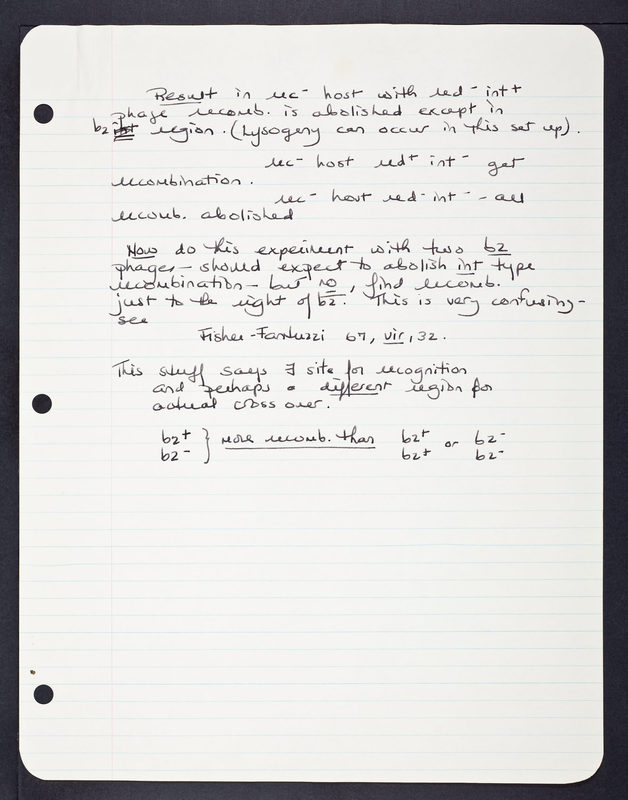 Result in rec- host with red- int+
phage recomb. is abolished except in
b2 region. (Lysogeny can occur in this set up).
rec- host red+ int- get
recombination.
rec- host red- int- - all
recomb. abolished
Now do this experiment with two b2
phages - should expect to abolish int type
recombination - but no, find recomb.
just to the right of b2. This is very confusing -
see
Fisher-Fantuzzi 67, vir, 32.
This stuff says ∃ site for recognition
and perhaps a different region for
actual cross over.
b2+ } more recomb. than b2+ or b2-
b2- b2+ b2-